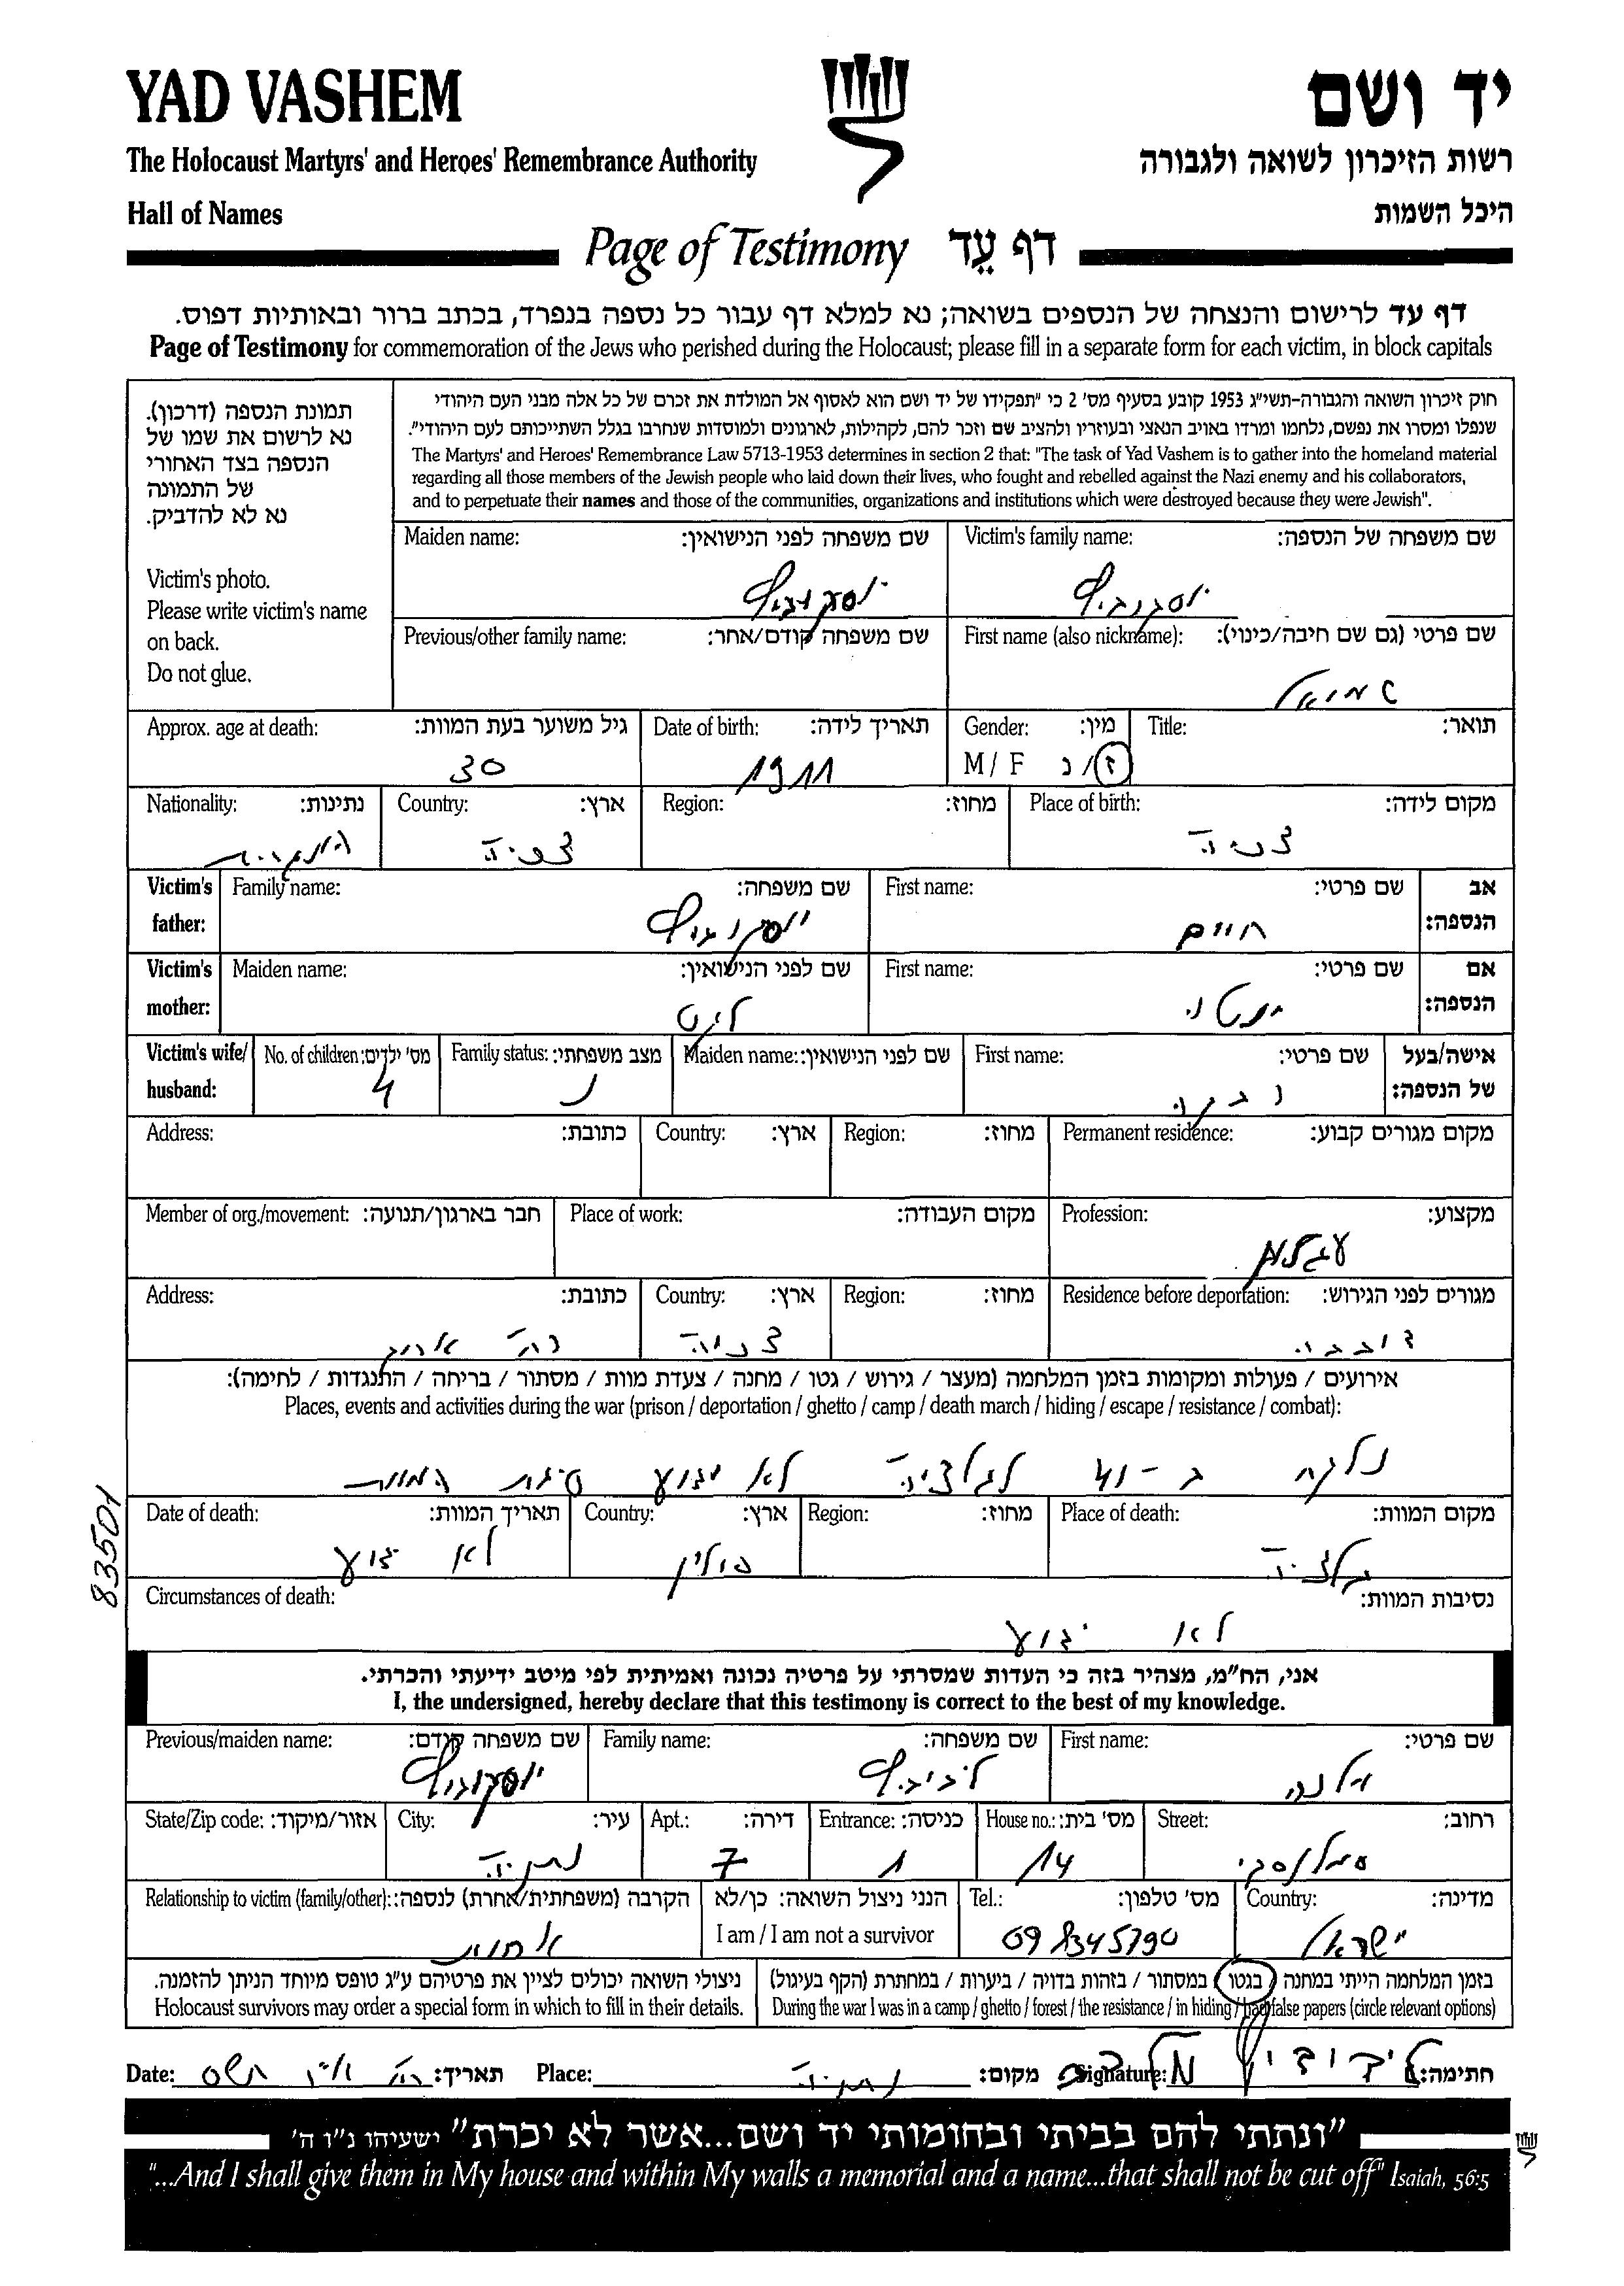 YAD VASHEM
יד ושם
The Holocaust Martyrs' and Heroes' Remembrance Authority
רשות הזיכרון לשואה ולגבורה
Hall of Names
היכל השמות
Page of Testimony דף עֵד
דף עד לרישום והנצחה של הנספים בשואה; נא למלא דף עבור כל נספה בנפרד, בכתב ברור ובאותיות דפוס.
Page of Testimony for commemoration of the Jews who perished during the Holocaust; please fill in a separate form for each victim, in block capitals
תמונת הנספה (דרכון).
נא לרשום את שמו של
הנספה בצד האחורי
של התמונה
נא לא להדביק.
Victim's photo.
Please write victim's name
on back.
Do not glue.
חוק זיכרון השואה והגבורה-תשי"ג 1953 קובע בסעיף מס' 2 כי "תפקידו של יד ושם הוא לאסוף אל המולדת את זכרם של כל אלה מבני העם היהודי
שנפלו ומסרו את נפשם, נלחמו ומרדו באויב הנאצי ובעוזריו ולהציב שם וזכר להם, לקהילות, לארגונים ולמוסדות שנחרבו בגלל השתייכותם לעם היהודי".
The Martyrs' and Heroes' Remembrance Law 5713-1953 determines in section 2 that: "The task of Yad Vashem is to gather into the homeland material
regarding all those members of the Jewish people who laid down their lives, who fought and rebelled against the Nazi enemy and his collaborators,
and to perpetuate their names and those of the communities, organizations and institutions which were destroyed because they were Jewish".
Victim's family name: שם משפחה של הנספה:
Maiden name: שם משפחה לפני הנישואין:
First name (also nickname): שם פרטי (גם שם חיבה/כינוי):
שמואל
Previous/other family name: שם משפחה קודם/אחר:
Title: תואר:
Gender: מין:
M / F ז/נ
Date of birth: תאריך לידה:
1911
Approx. age at death: גיל משוער בעת המוות:
30
Place of birth: מקום לידה:
Region: מחוז:
Country: ארץ:
Nationality: נתינות:
הונגרית
אב הנספה: Victim's father:
First name: שם פרטי:
חיים
Family name: שם משפחה:
אם הנספה: Victim's mother:
First name: שם פרטי:
Maiden name: שם לפני הנישואין:
אישה/בעל של הנספה: Victim's wife/ husband:
First name: שם פרטי:
Maiden name: שם לפני הנישואין:
Family status: מצב משפחתי:
נ
No. of children: מס' ילדים:
4
Permanent residence: מקום מגורים קבוע:
Region: מחוז:
Country: ארץ:
Address: כתובת:
Profession: מקצוע:
Place of work: מקום העבודה:
Member of org./movement: חבר בארגון/תנועה:
Residence before deportation: מגורים לפני הגירוש:
Region: מחוז:
Country: ארץ:
Address: כתובת:
אירועים / פעולות ומקומות בזמן המלחמה (מעצר / גירוש / גטו / מחנה / צעדת מוות / מסתור / בריחה / התנגדות / לחימה):
Places, events and activities during the war (prison / deportation / ghetto / camp / death march / hiding / escape / resistance / combat):
נלקח ב - לגליציה לא ידוע סיבת המוות
Place of death: מקום המוות:
גליציה
Region: מחוז:
Country: ארץ:
פולין
Date of death: תאריך המוות:
לא ידוע
83501
Circumstances of death: נסיבות המוות:
לא ידוע
אני, הח"מ, מצהיר בזה כי העדות שמסרתי על פרטיה נכונה ואמיתית לפי מיטב ידיעתי והכרתי.
I, the undersigned, hereby declare that this testimony is correct to the best of my knowledge.
First name: שם פרטי:
Family name: שם משפחה:
Previous/maiden name: שם משפחה קודם:
Street: רחוב:
House no.: מס' בית:
14
Entrance: כניסה:
1
Apt.: דירה:
7
City: עיר:
נתניה
State/Zip code: אזור/מיקוד:
Country: מדינה:
ישראל
Tel.: מס' טלפון:
09 8345790
הנני ניצול השואה: כן/לא
I am / I am not a survivor
Relationship to victim (family/other): הקרבה (משפחתית/אחרת) לנספה:
אחות
בזמן המלחמה הייתי במחנה / בגטו / במסתור / בזהות בדויה / ביערות / במחתרת (הקף בעיגול)
During the war I was in a camp / ghetto / forest / the resistance / in hiding / had false papers (circle relevant options)
ניצולי השואה יכולים לציין את פרטיהם ע"ג טופס מיוחד הניתן להזמנה.
Holocaust survivors may order a special form in which to fill in their details.
Signature: חתימה:
Place: נתניה מקום:
Date: תאריך:
"ונתתי להם בביתי ובחומותי יד ושם...אשר לא יכרת" ישעיהו נ"ו ה'
"...And I shall give them in My house and within My walls a memorial and a name...that shall not be cut off" Isaiah, 56:5